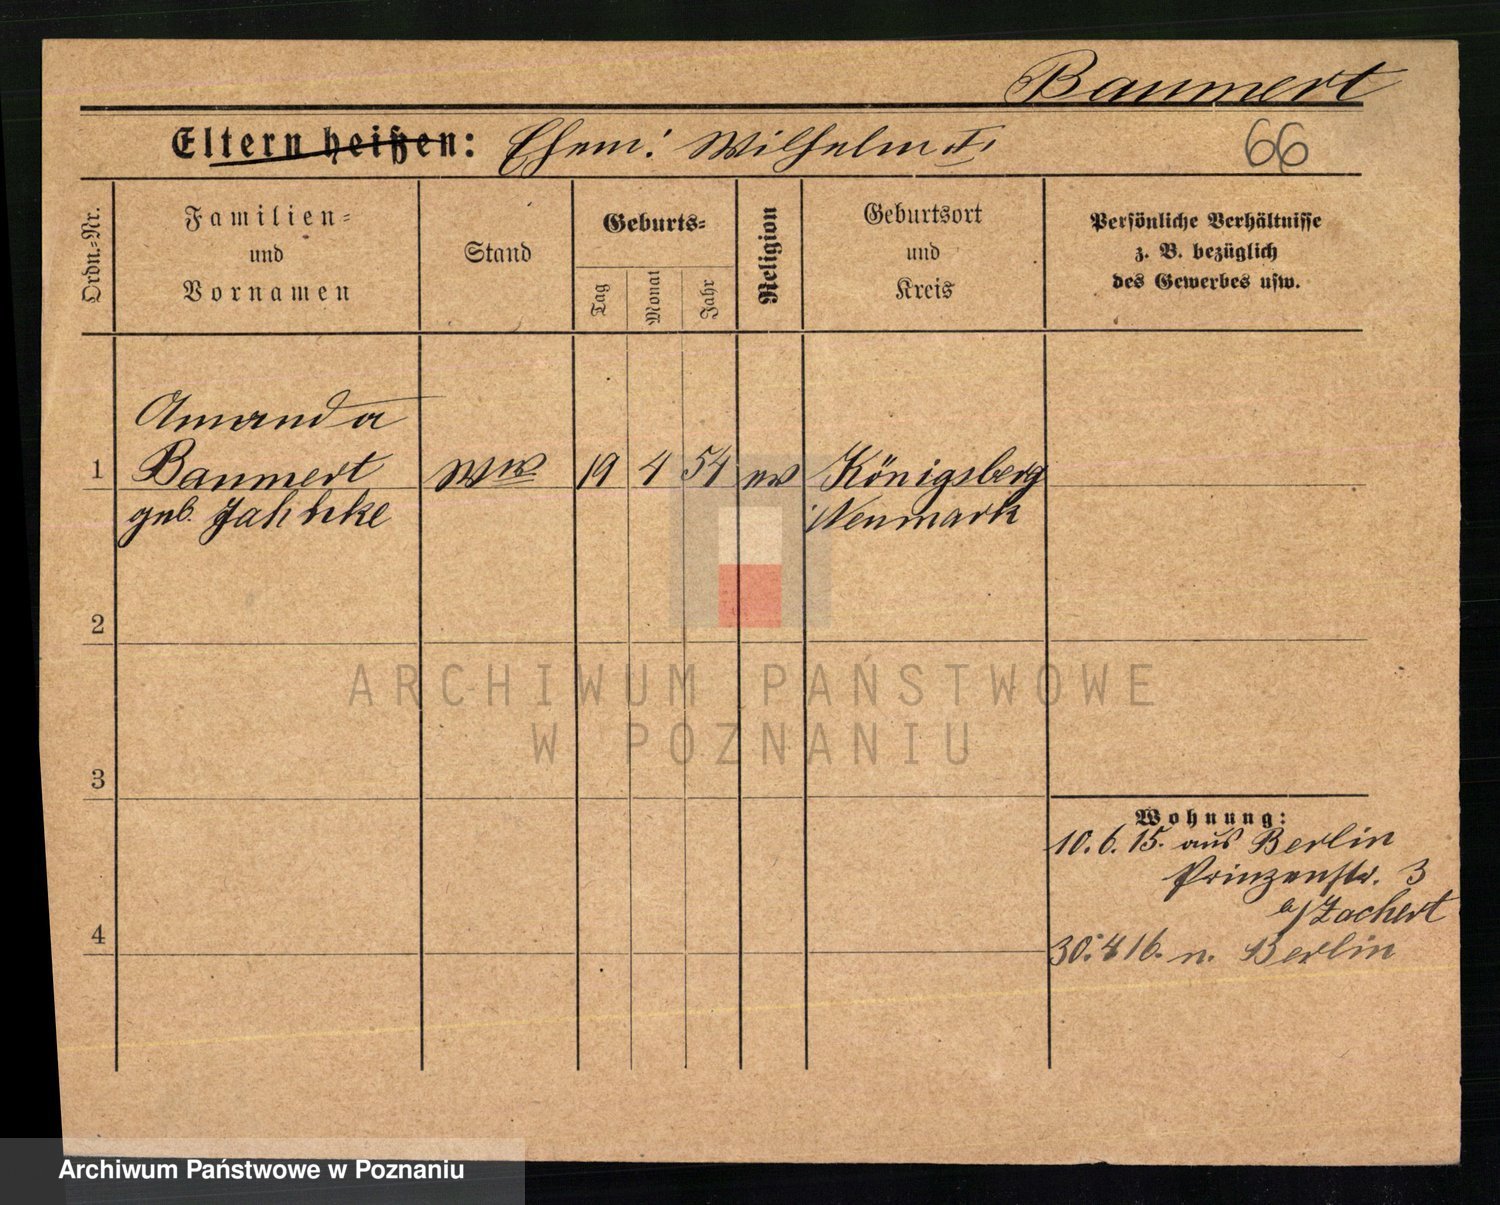 Baumert
Eltern heißen: Ehem: Wilhelm †.
66
Ordn.=Nr.
Familien=
und
Vornamen
Stand
Geburts=
Tag
Monat
Jahr
Religion
Geburtsort
und
Kreis
Persönliche Verhältnisse
z. B. bezüglich
des Gewerbes usw.
Amanda
1 Baumert Ww 19 4 54 ev Königsberg
geb. Jahnke Neumark
2
3
4
Wohnung:
10. 6. 15. aus Berlin
Prinzenstr. 3
b/Zachert
30. 4 16. n. Berlin
ARCHIWUM PAŃSTWOWE
W POZNANIU
Archiwum Państwowe w Poznaniu